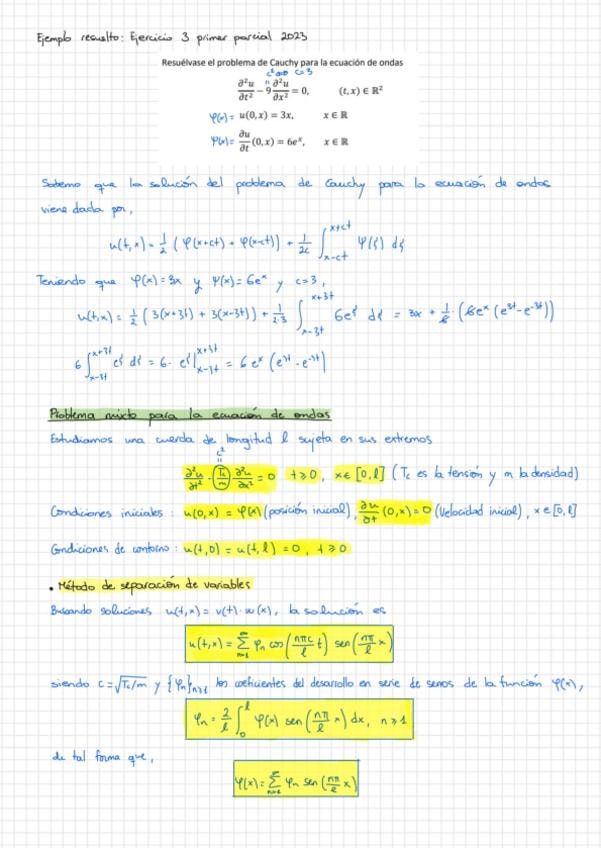 Ejemplo resuelto: Ejercicio 3 primer parcial 2023
Resuélvase el problema de Cauchy para la ecuación de ondas
c²=9 ⇒ c=3
∂²u/∂t² − 9 ∂²u/∂x² = 0, (t, x) ∈ ℝ²
φ(x) = u(0, x) = 3x, x ∈ ℝ
Ψ(x) = ∂u/∂t (0, x) = 6eˣ, x ∈ ℝ
Sabemo que la solución del problema de Cauchy para la ecuación de ondas
viene dada por,
u(t,x) = 1/2 (φ(x+ct) + φ(x-ct)) + 1/2c ∫_{x-ct}^{x+ct} Ψ(ξ) dξ
Teniendo que φ(x) = 3x y Ψ(x) = 6eˣ y c=3,
u(t,x) = 1/2 (3(x+3t) + 3(x-3t)) + 1/2·3 ∫_{x-3t}^{x+3t} 6e^ξ dξ = 3x + 1/6 · (6eˣ (e^{3t} - e^{-3t}))
6 ∫_{x-3t}^{x+3t} e^ξ dξ = 6 · e^ξ |_{x-3t}^{x+3t} = 6eˣ (e^{3t} - e^{-3t})
Problema mixto para la ecuación de ondas
Estudiamos una cuerda de longitud l sujeta en sus extremos
c²
∂²u/∂t² - (Tc/m) ∂²u/∂x² = 0 t ≥ 0, x ∈ [0, l] (Tc es la tensión y m la densidad)
Condiciones iniciales: u(0,x) = φ(x) (posición inicial), ∂u/∂t (0,x) = 0 (velocidad inicial), x ∈ [0, l]
Condiciones de contorno: u(t,0) = u(t,l) = 0, t ≥ 0
• Método de separación de variables
Buscando soluciones u(t,x) = v(t)·w(x), la solución es
u(t,x) = ∑_{n=1}^{∞} φn cos(nπc/l t) sen(nπ/l x)
siendo c = √Tc/m y {φn}n≥1 los coeficientes del desarrollo en serie de senos de la función φ(x),
φn = 2/l ∫_0^l φ(x) sen(nπ/l x) dx, n ≥ 1
de tal forma que,
φ(x) = ∑_{n=1}^{∞} φn sen(nπ/l x)